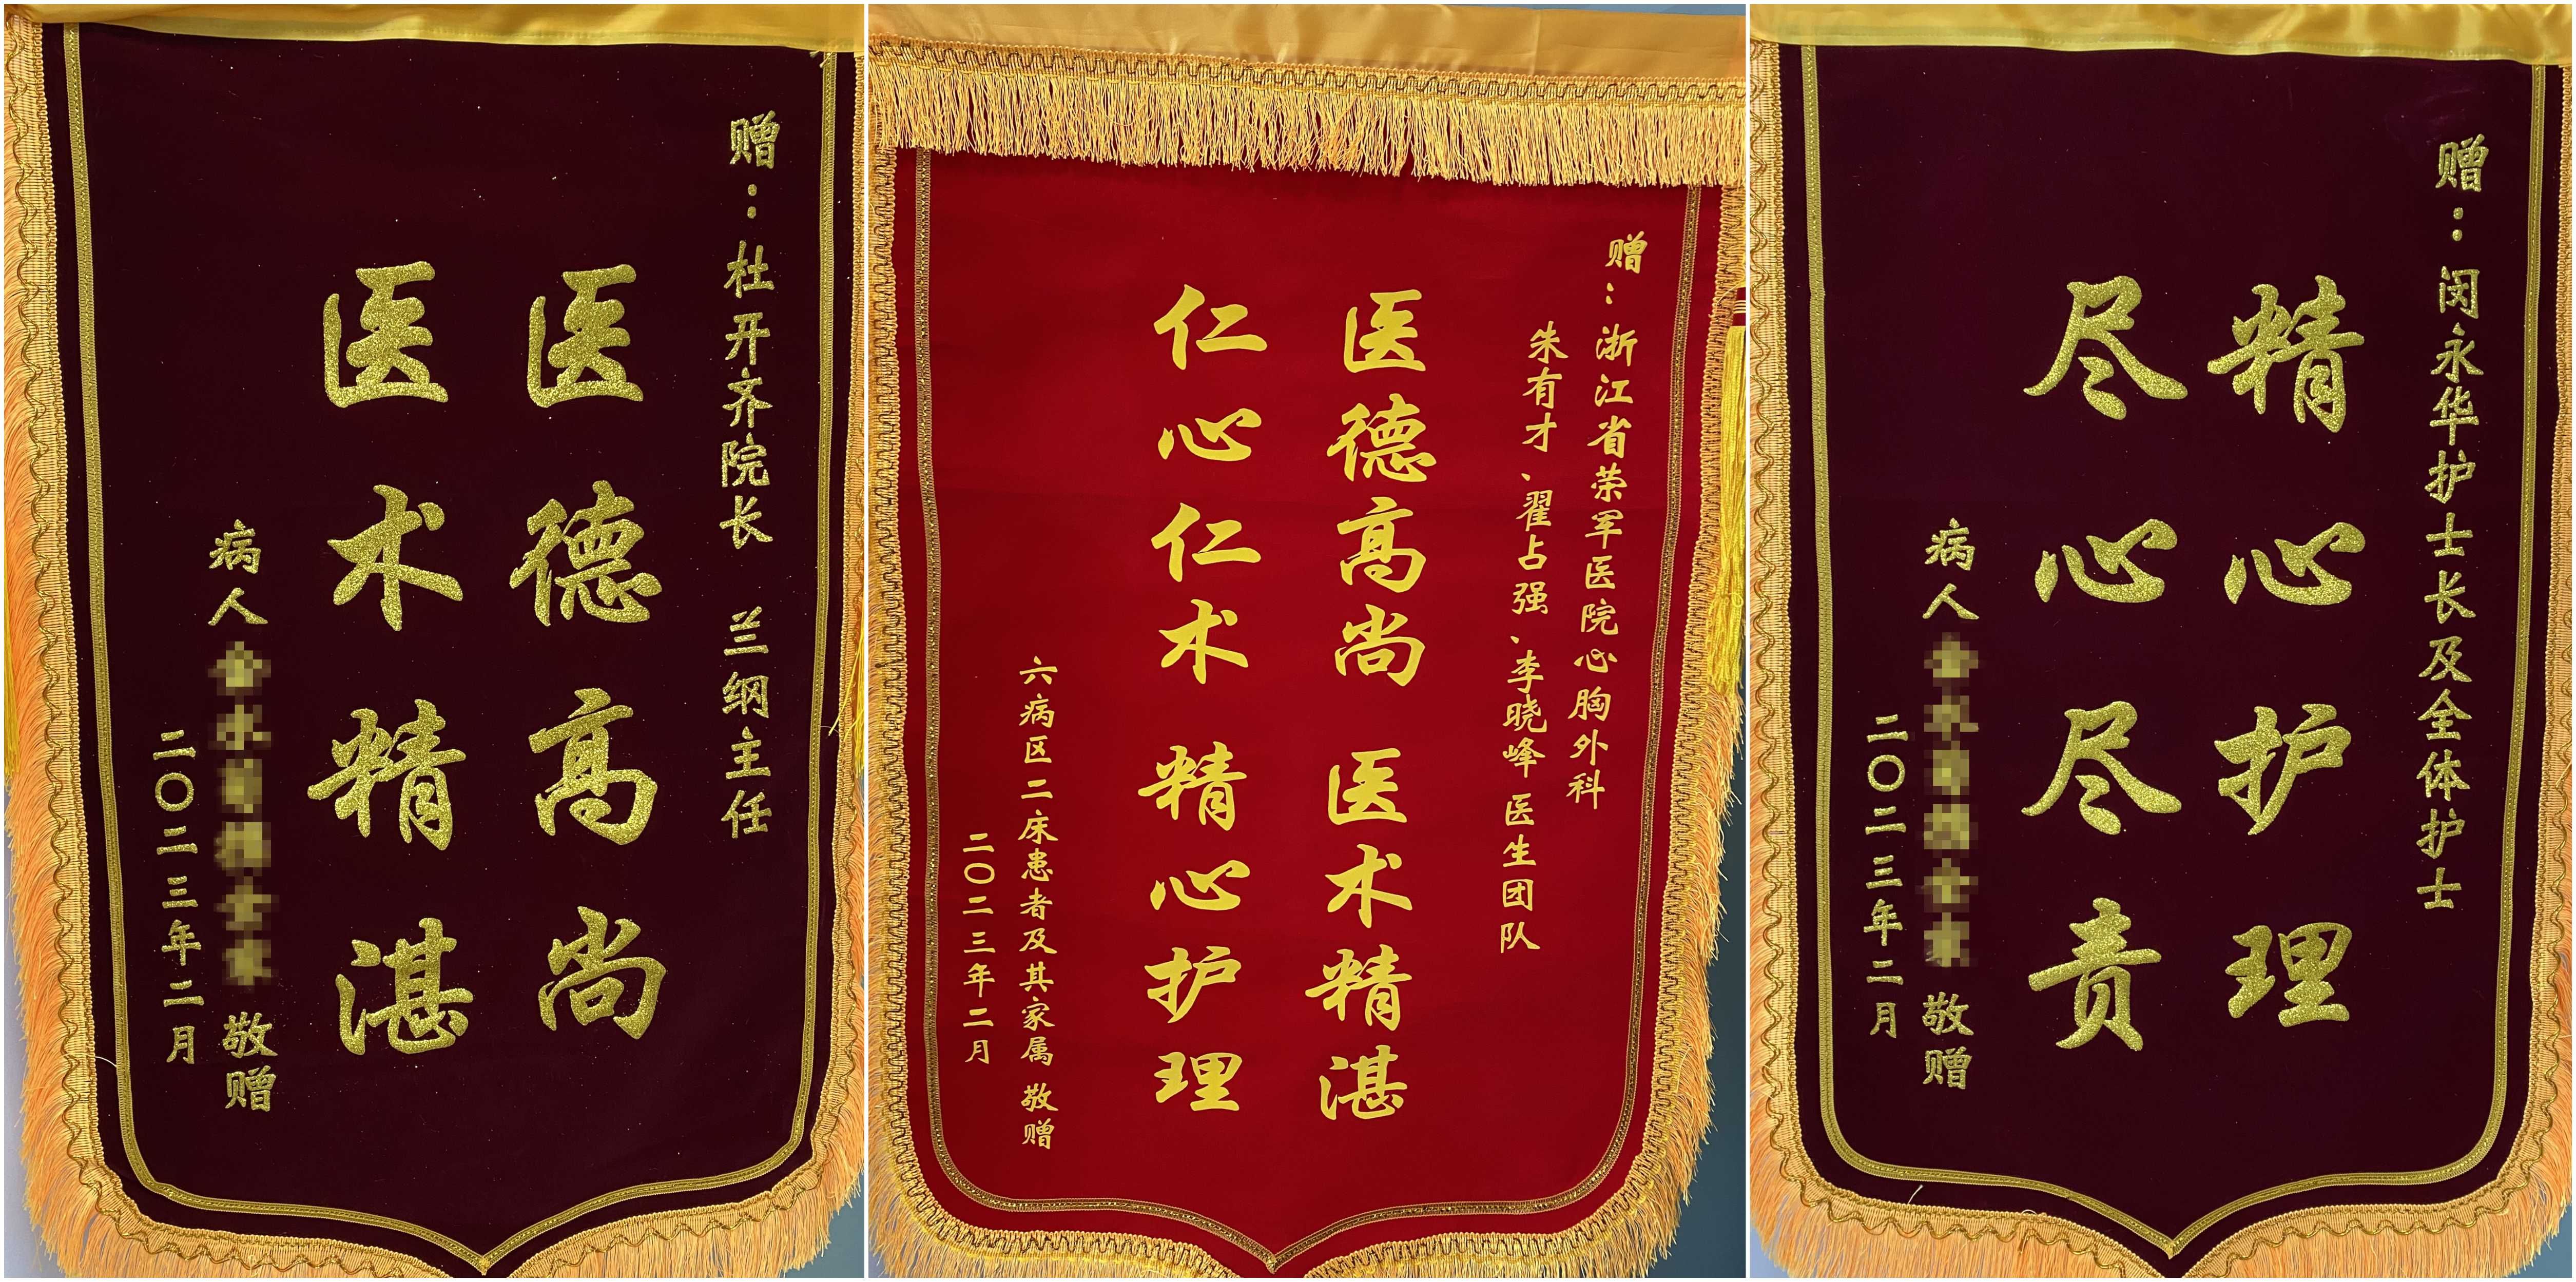 赠：杜开齐院长 兰纲主任
医德高尚
医术精湛
病人 敬赠
二〇二三年二月
赠：浙江省荣军医院心胸外科
朱有才、翟占强、李晓峰 医生团队
医德高尚 医术精湛
仁心仁术 精心护理
六病区二床患者及其家属 敬赠
二〇二三年二月
赠：闵永华护士长及全体护士
精心护理
尽心尽责
病人 敬赠
二〇二三年二月